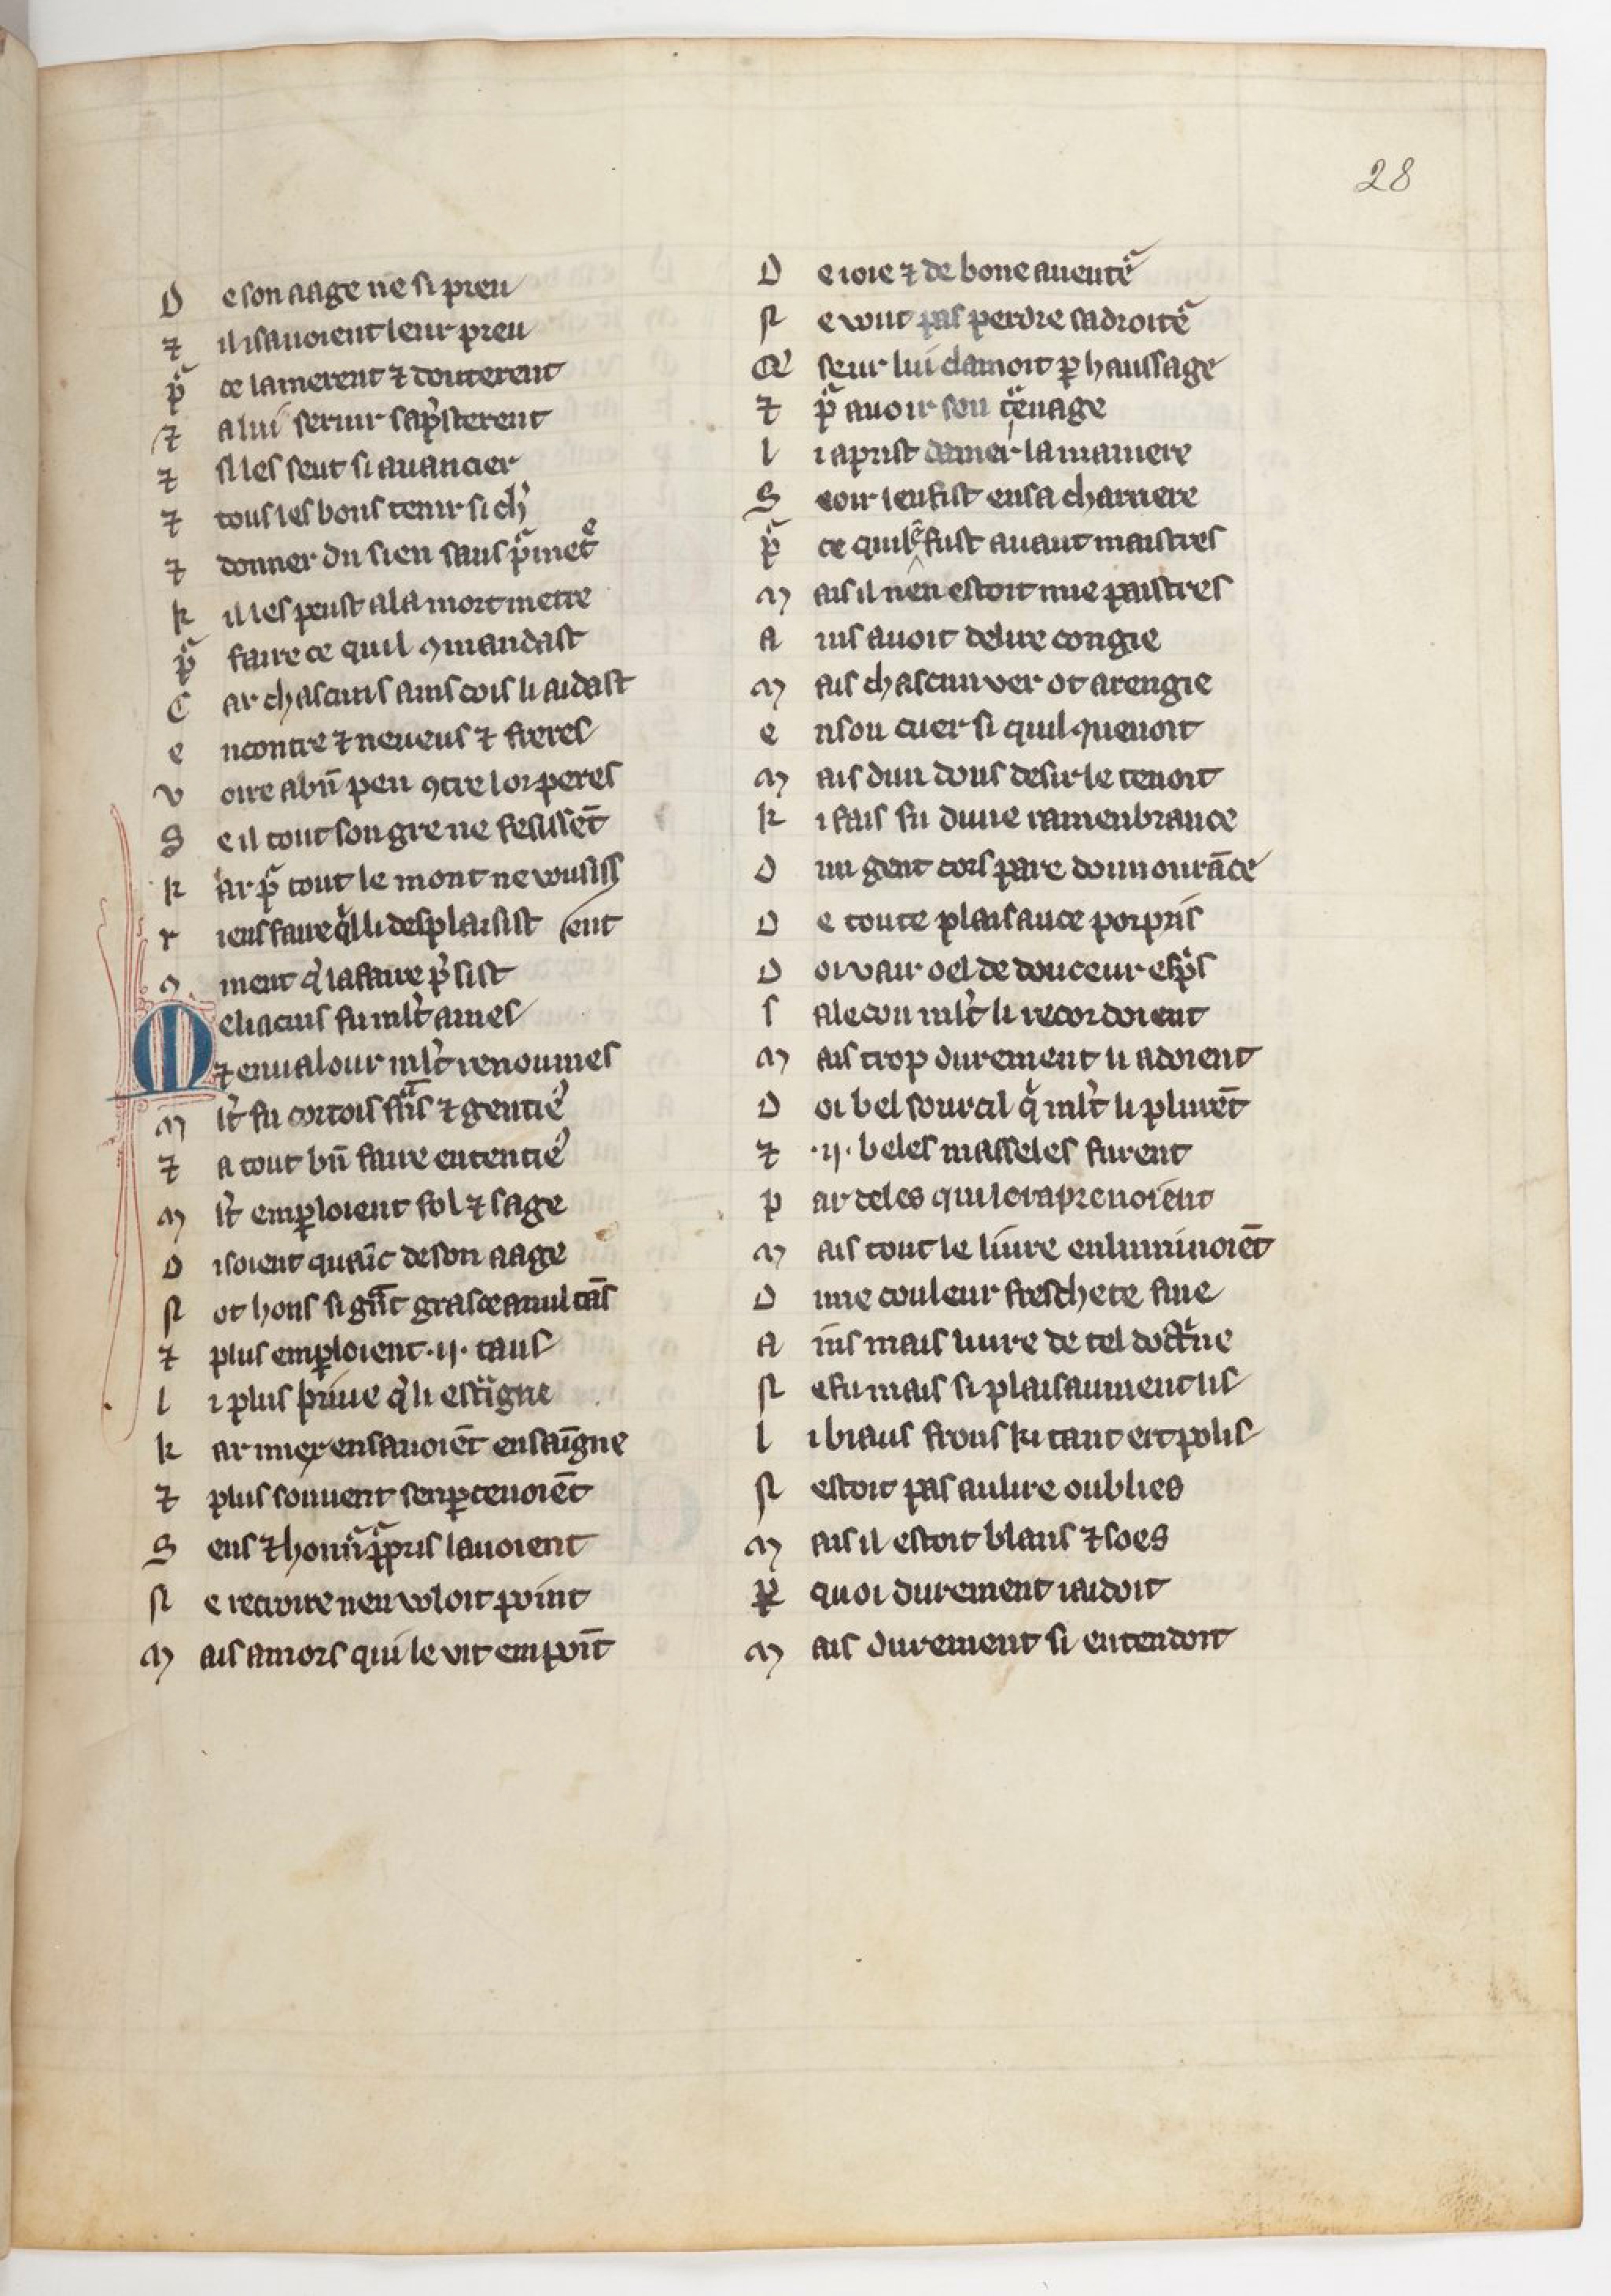 28
D e son aage ne si preu
⁊ il i sauoient leur preu
pͣ ce lamerent ⁊ douterent
⁊ a lui seruir sap̓sterent
⁊ sil les seut si auancier
⁊ tous les bons tenir si ch̓
⁊ donner du sien sans pͣmetͤ
k il les peust a la mort metre
pͣ faire ce quil ꝯmandast
C ar chascuns ainscois li aidast
e ncontre ⁊ neueus ⁊ freres
V oire a bn̄ peu ꝯtre lor peres
S e il tout son gre ne fesissēt
k ar pͣ tout le mont ne vousiss
r iens faire qͥl li desplaisist ent
ꝯ ment qͥ lafaire p̓sist
M eliacins fu ml̓t ames
⁊ en ualour ml̓t renoumes
M l̓t fu cortois frās ⁊ gentiē
⁊ a tout bn̄ faire ententiē
M l̓t emꝑloient fol ⁊ sage
D isoient quainc de son aage
N ot hons si gnt̄ grasce a nul tās
⁊ plus emꝑloient .ij. tans
l i plus priue qͥ li estͣigne
k ar mier en sauoiēt ensaīgne
⁊ plus souuent senꝑceuoiēt
S ens ⁊ honnͣ pͣpris lauoient
N e recroire nen voloit point
M ais amors qui le vit em poīt
D e ioie ⁊ de bone auentͣe
N e vout pas perdre sa droitͣe
Q̄ seur lui clamoit ꝑ haussage
⁊ pͣ auoir sen tͣeuage
l i aprist damer la maniere
S eoir len fist en sa chaiiere
pͣ ce quil bn̄ fust auant maistres
M ais il nen estoit mie paistres
A ins auoit de lire congie
M ais chascun ver ot arengie
e n son cuer si quil ꝯuenoit
M ais dun dous desir le tenoit
k i fais fu dune ramenbrance
D un gent cors pare donnourāce
D e toute plaisance porpris
D oi vair oel de douceur espͥs
s a lecon ml̓t li recordoient
M ais trop durement li aidoient
D oi bel sourcil qͥ ml̓t li plurēt
⁊ .ij. beles masseles furent
p ar deles qui lor aprenoient
M ais tout le liure enluminoiēt
D une couleur freschete fine
A ins mais liure de tel doctͥne
N e fu mais si plaisaument lis
l i biaus frons ki tant ert polis
N estoit pas au lire oublies
M ais il estoit blans ⁊ soes
Ꝑ quoi durement i aidoit
M ais durement si entendoit